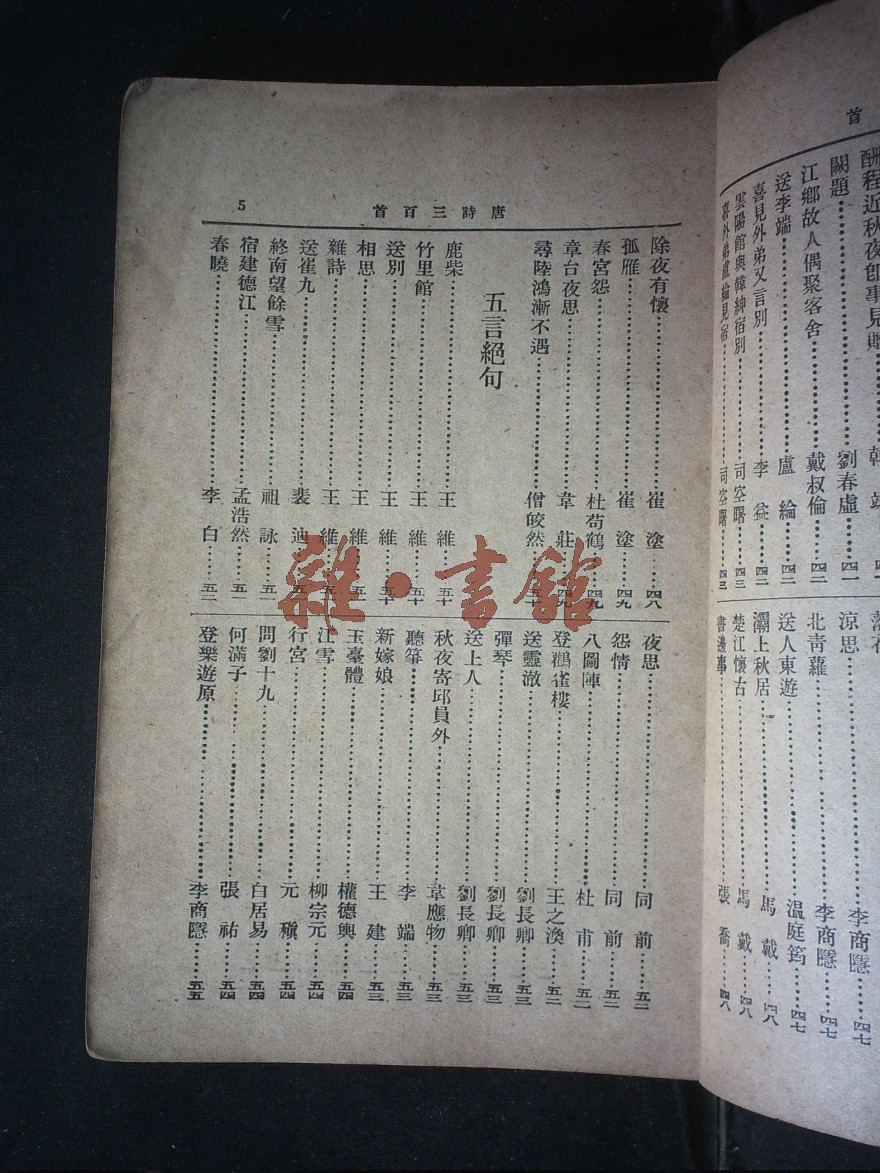 首
酬程近秋夜即事見贈
闕題⋯⋯劉春虛⋯⋯四一
江鄉故人偶聚客舍⋯⋯戴叔倫⋯⋯四二
送李端⋯⋯盧綸⋯⋯四二
喜見外弟又言別⋯⋯李益⋯⋯四二
雲陽館與韓紳宿別⋯⋯司空曙⋯⋯四三
喜外弟盧綸見宿⋯⋯司空曙⋯⋯四三
涼思⋯⋯李商隱⋯⋯四七
北青蘿⋯⋯李商隱⋯⋯四七
送人東遊⋯⋯溫庭筠⋯⋯四七
灞上秋居⋯⋯馬戴⋯⋯四八
楚江懷古⋯⋯馬戴⋯⋯四八
書邊事⋯⋯張喬⋯⋯四八
唐詩三百首
5
除夜有懷⋯⋯崔塗⋯⋯四八
孤雁⋯⋯崔塗⋯⋯四九
春宮怨⋯⋯杜荀鶴⋯⋯四九
章台夜思⋯⋯韋莊⋯⋯四九
尋陸鴻漸不遇⋯⋯僧皎然⋯⋯五十
五言絕句
鹿柴⋯⋯王維⋯⋯五十
竹里館⋯⋯王維⋯⋯五十
送別⋯⋯王維⋯⋯五十
相思⋯⋯王維⋯⋯五十
雜詩⋯⋯王維⋯⋯五十
送崔九⋯⋯裴迪⋯⋯五一
終南望餘雪⋯⋯祖詠⋯⋯五一
宿建德江⋯⋯孟浩然⋯⋯五一
春曉⋯⋯李白⋯⋯五二
夜思⋯⋯同前⋯⋯五二
怨情⋯⋯同前⋯⋯五二
八圖陣⋯⋯杜甫⋯⋯五二
登鸛雀樓⋯⋯王之渙⋯⋯五二
送靈澈⋯⋯劉長卿⋯⋯五三
彈琴⋯⋯劉長卿⋯⋯五三
送上人⋯⋯劉長卿⋯⋯五三
秋夜寄邱員外⋯⋯韋應物⋯⋯五三
聽箏⋯⋯李端⋯⋯五三
新嫁娘⋯⋯王建⋯⋯五三
玉臺體⋯⋯權德輿⋯⋯五四
江雪⋯⋯柳宗元⋯⋯五四
行宮⋯⋯元稹⋯⋯五四
問劉十九⋯⋯白居易⋯⋯五四
何滿子⋯⋯張祜⋯⋯五四
登樂遊原⋯⋯李商隱⋯⋯五五
雜·書館